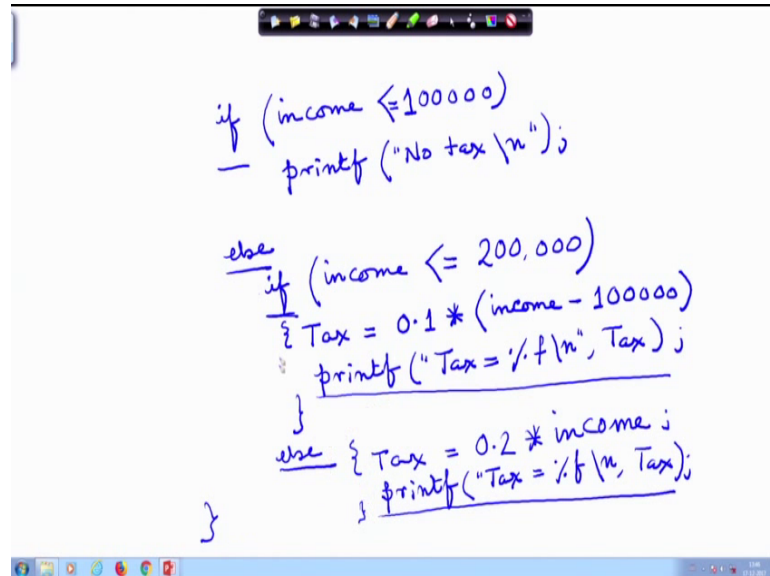 if (income <=100000)
printf ("No tax \n");
else
if (income <= 200,000)
{ Tax = 0.1 * (income - 100000)
printf ("Tax = %f \n", Tax);
}
else { Tax = 0.2 * income ;
printf("Tax = %f \n, Tax);
}
}